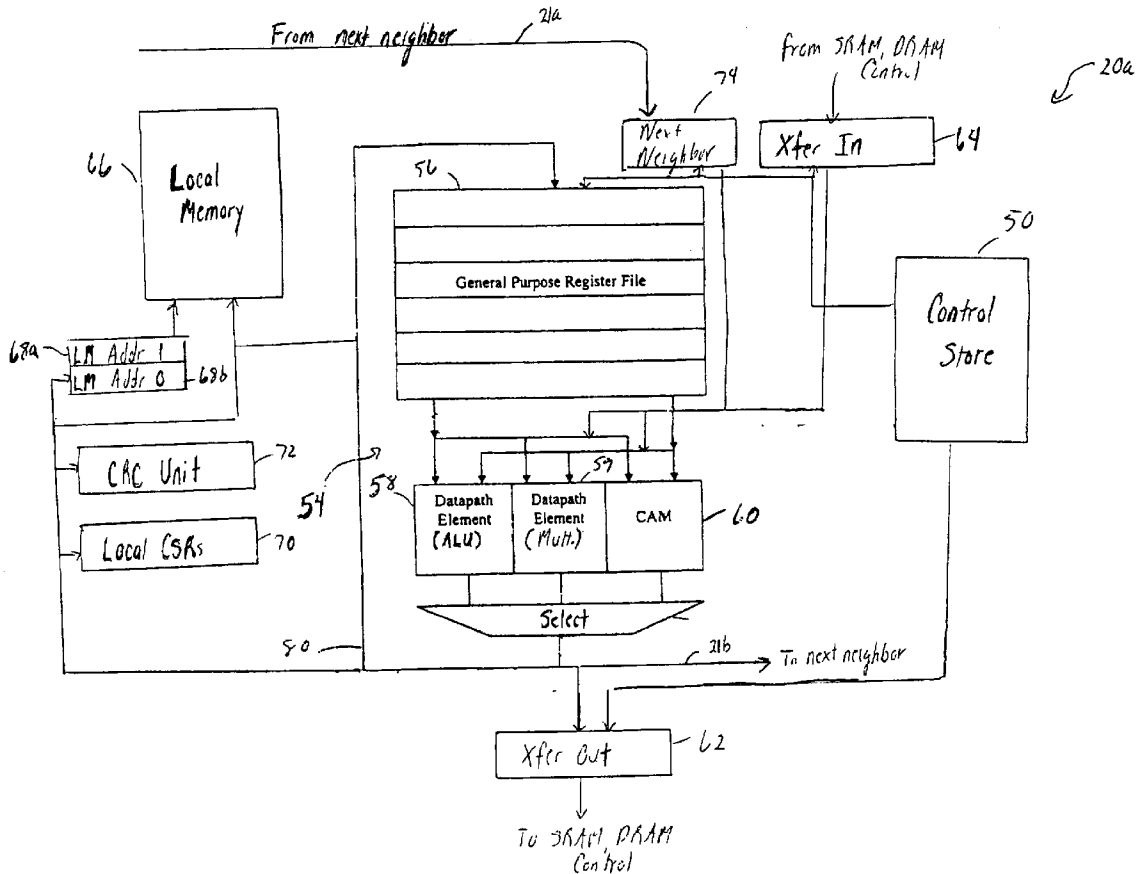 From next neighbor
21a
from SRAM, DRAM
Control
20a
74
Next
Neighbor
Xfer In
64
66
Local
Memory
56
General Purpose Register File
50
Control
Store
68a
LM Addr 1
LM Addr 0
68b
CRC Unit
72
54
58
Datapath
Element
(ALU)
59
Datapath
Element
(Mult.)
CAM
60
Local CSRs
70
Select
80
21b
To next neighbor
Xfer Out
62
To SRAM, DRAM
Control